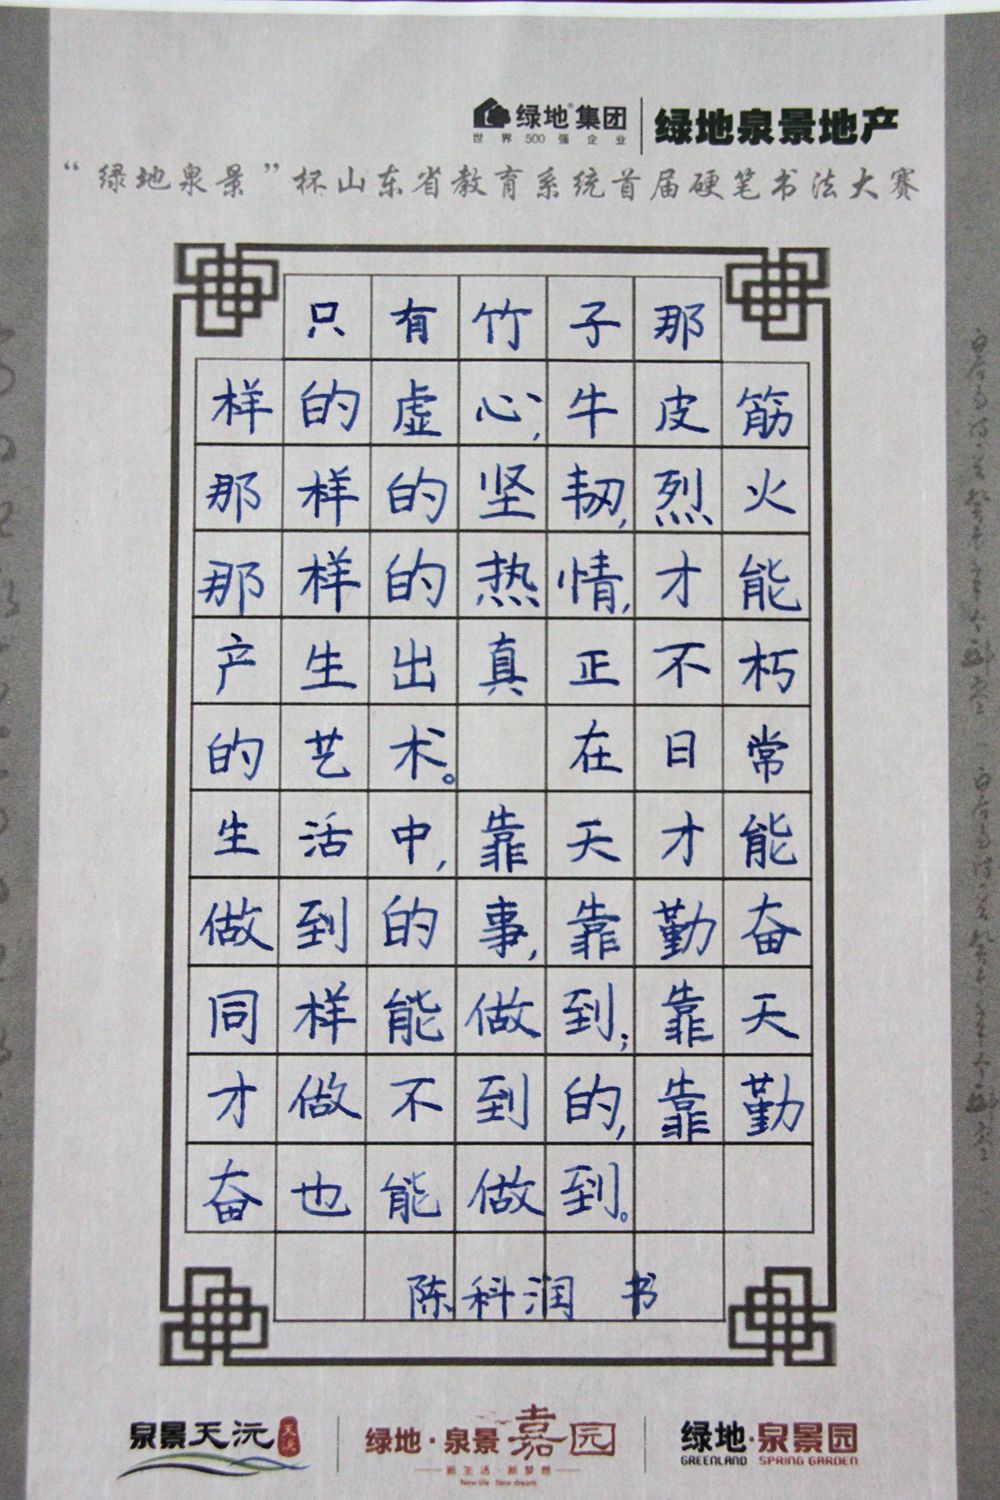 绿地集团
世界500强企业
绿地泉景地产
“绿地泉景”杯山东省教育系统首届硬笔书法大赛
只有竹子那
样的虚心,牛皮筋
那样的坚韧,烈火
那样的热情,才能
产生出真正不朽
的艺术。 在日常
生活中,靠天才能
做到的事,靠勤奋
同样能做到;靠天
才做不到的,靠勤
奋也能做到。
陈科润 书
泉景天沅
天沅
绿地·泉景嘉园
新生活 新梦想
New life New dream
绿地·泉景园
GREENLAND SPRING GARDEN